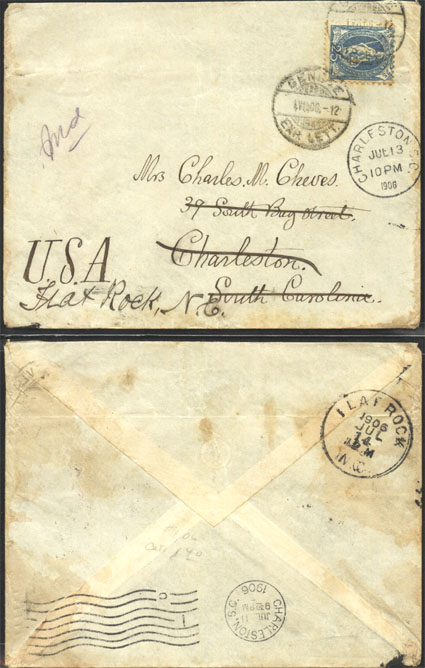 25
GENÈVE
EXP. LETT.
CHARLESTON, S.C.
JUL 13
10 PM
1906
Mrs Charles. M. Cheves.
39 South Bay Street.
Charleston.
U.S.A.
South Carolina.
Flat Rock, N.C.
FLAT ROCK
1906
JUL
14
M
N.C.
CHARLESTON, S.C.
JUL 11
1906